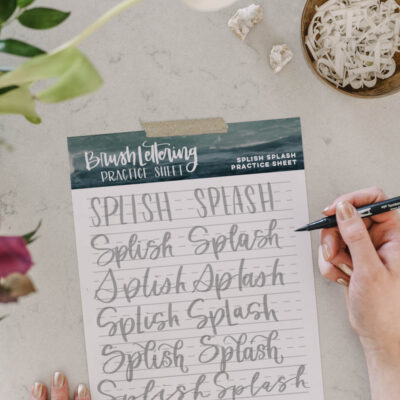 Brush Lettering
PRACTICE SHEET
SPLISH SPLASH
PRACTICE SHEET
SPLISH SPLASH
Splish Splash
Splish Splash
Splish Splash
Splish Splash
Splish Splash